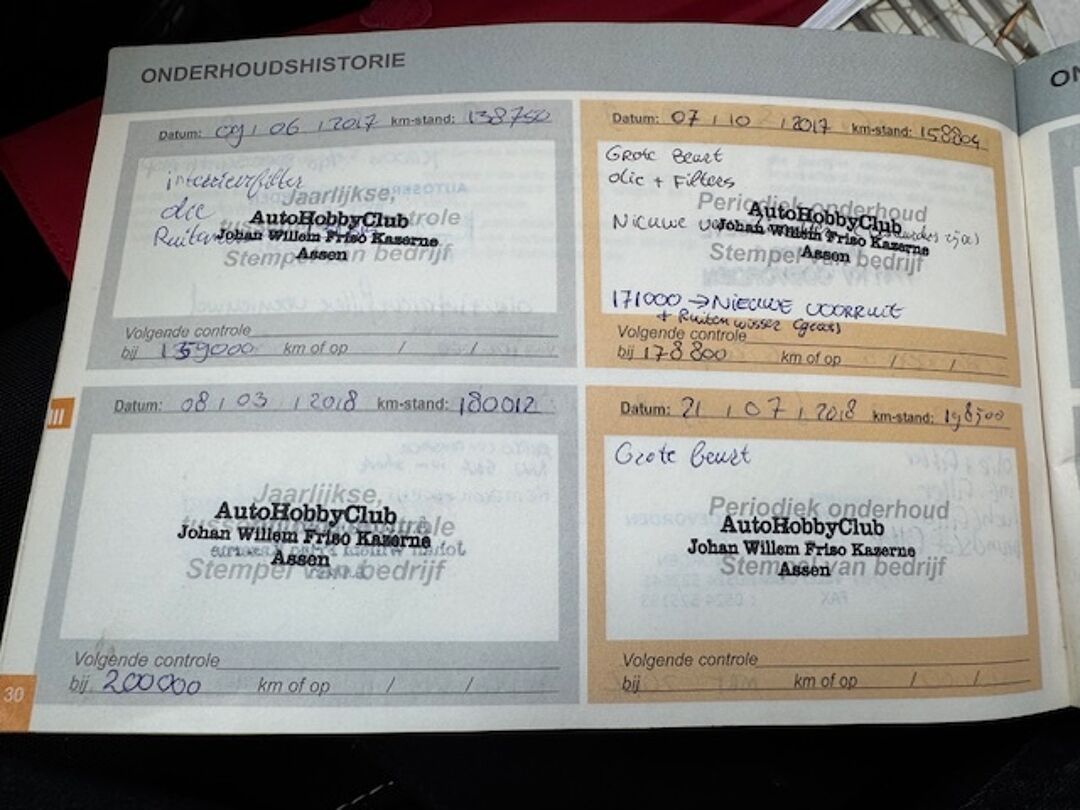 ONDERHOUDSHISTORIE
ON
Datum: 09 / 06 / 2017 km-stand: 138750
interieurfilter
Jaarlijkse,
olie
AutoHobbyClub
Johan Willem Friso Kazerne
Assen
Stempel van bedrijf
Volgende controle
bij 159000 km of op / /
Datum: 07 / 10 / 2017 km-stand: 158804
Grote Beurt
olie + Filters
Periodiek onderhoud
AutoHobbyClub
Nieuwe
Johan Willem Friso Kazerne
Assen
Stempel van bedrijf
171000 → Nieuwe voorruit
+ Ruitenwisser (groot)
Volgende controle
bij 178800 km of op / /
III
Datum: 08 / 03 / 2018 km-stand: 180012
Jaarlijkse,
AutoHobbyClub
tussentijdse controle
Johan Willem Friso Kazerne
Assen
Stempel van bedrijf
Volgende controle
bij 200000 km of op / /
Datum: 21 / 07 / 2018 km-stand: 198500
Grote beurt
Periodiek onderhoud
AutoHobbyClub
Johan Willem Friso Kazerne
Assen
Stempel van bedrijf
Volgende controle
bij km of op / /
30